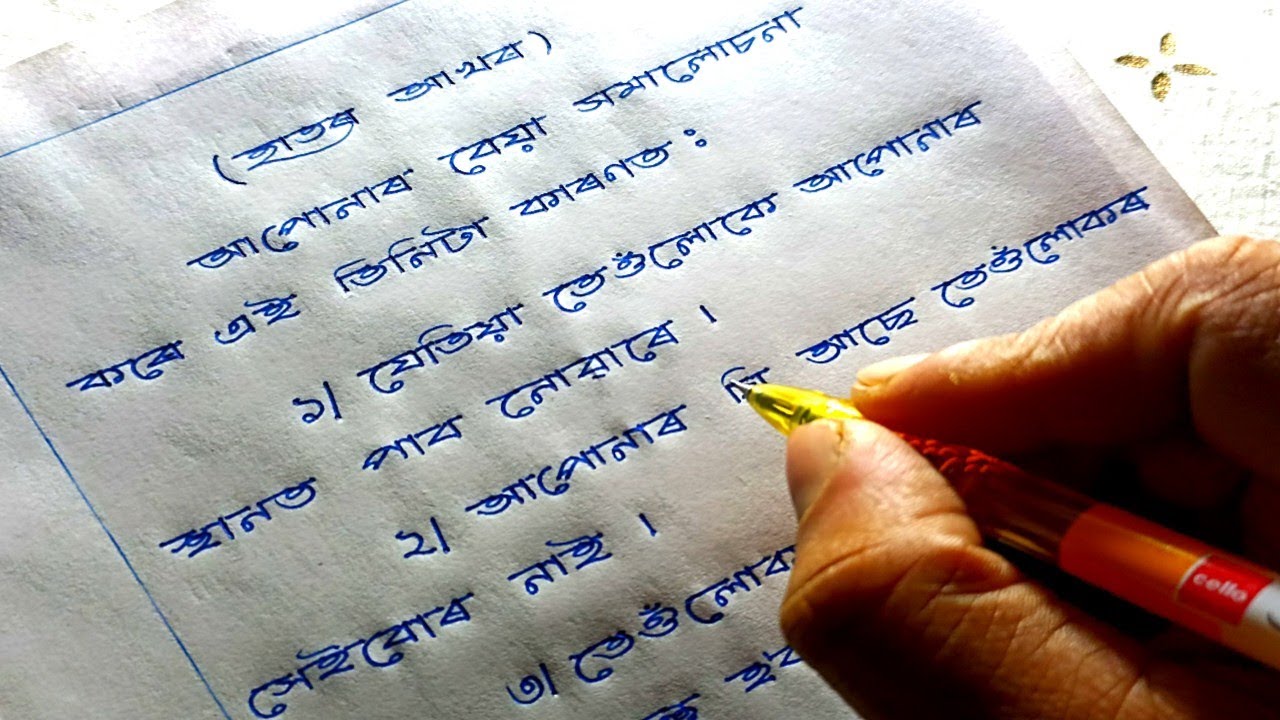 (হাতৰ আখৰ)
আপোনাৰ বেয়া সমালোচনা
কৰে এই তিনিটা কাৰণত :
১। যেতিয়া তেওঁলোকে আপোনাৰ
স্থানত পাব নোৱাৰে ।
২। আপোনাৰ যি আছে তেওঁলোকৰ
সেইবোৰ নাই ।
৩। তেওঁলোক
হ'ব
cello